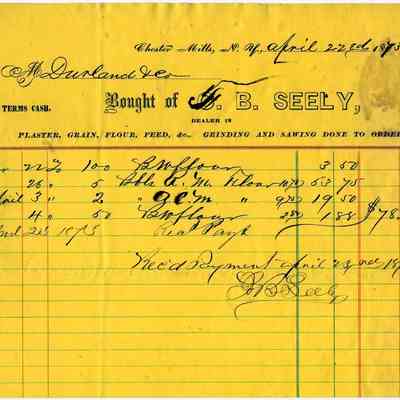 Chester Mills, N. Y., April 22nd 1875
H Durland & Co
TERMS CASH. Bought of F. B. SEELY,
DEALER IN
PLASTER, GRAIN, FLOUR, FEED, &c. GRINDING AND SAWING DONE TO ORDER
22 100 BW flour 3 50
26 " 5 Bbls A. M. Flour 10 75 53 75
April 3 " 2 " G E M " 9 75 19 50
4 " 50 BW flour 1 88 $78
1875
Rec'd Payment April 23rd 187
F B Seely